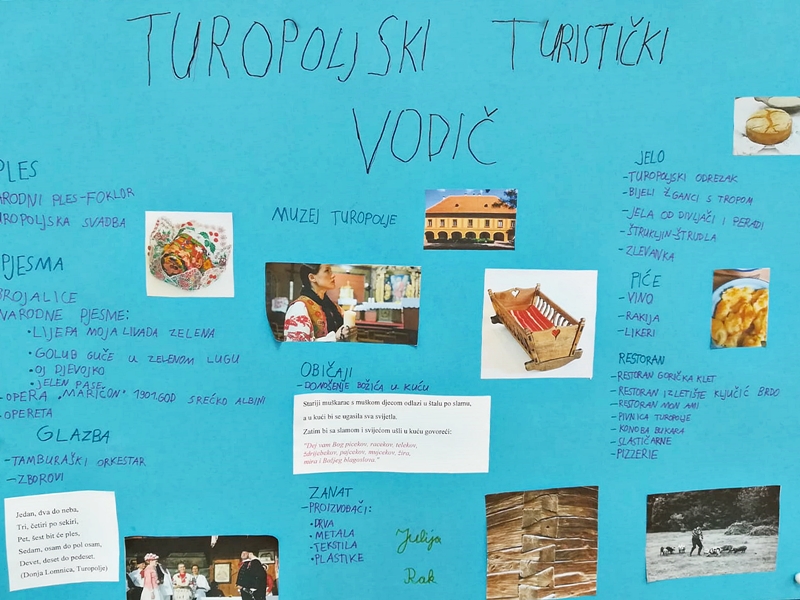 TUROPOLJSKI TURISTIČKI
VODIČ
PLES
NARODNI PLES-FOKLOR
TUROPOLJSKA SVADBA
PJESMA
BROJALICE
NARODNE PJESME:
• LIJEPA MOJA LIVADA ZELENA
• GOLUB GUČE U ZELENOM LUGU
• OJ DJEVOJKO
• JELEN PASE
-OPERA „MARIČON" 1901.GOD SREĆKO ALBINI
-OPERETA
GLAZBA
-TAMBURAŠKI ORKESTAR
-ZBOROVI
Jedan, dva do neba,
Tri, četiri po sekiri,
Pet, šest bit će ples,
Sedam, osam do pol osam,
Devet, deset do pedeset.
(Donja Lomnica, Turopolje)
MUZEJ TUROPOLJE
OBIČAJI
-DONOŠENJE BOŽIĆA U KUĆU
Stariji muškarac s muškom djecom odlazi u štalu po slamu,
a u kući bi se ugasila sva svijetla.
Zatim bi sa slamom i svijećom ušli u kuću govoreći:
"Dej vam Bog picekov, racekov, telekov,
ždrijebekov, pajcekov, mujcekov, žira,
mira i Božjeg blagoslova."
ZANAT
-PROIZVOĐAČI:
• DRVA
• METALA
• TEKSTILA
• PLASTIKE
Julija
Rak
JELO
-TUROPOLJSKI ODREZAK
-BIJELI ŽGANCI S TROPOM
-JELA OD DIVLJAČI I PERADI
-ŠTRUKLJIN-ŠTRUDLA
-ZLEVANKA
PIĆE
-VINO
-RAKIJA
-LIKERI
RESTORAN
-RESTORAN GORIČKA KLET
-RESTORAN IZLETIŠTE KLJUČIĆ BRDO
-RESTORAN MON AMI
-PIVNICA TUROPOLJE
-KONOBA BUKARA
-SLASTIČARNE
-PIZZERIE